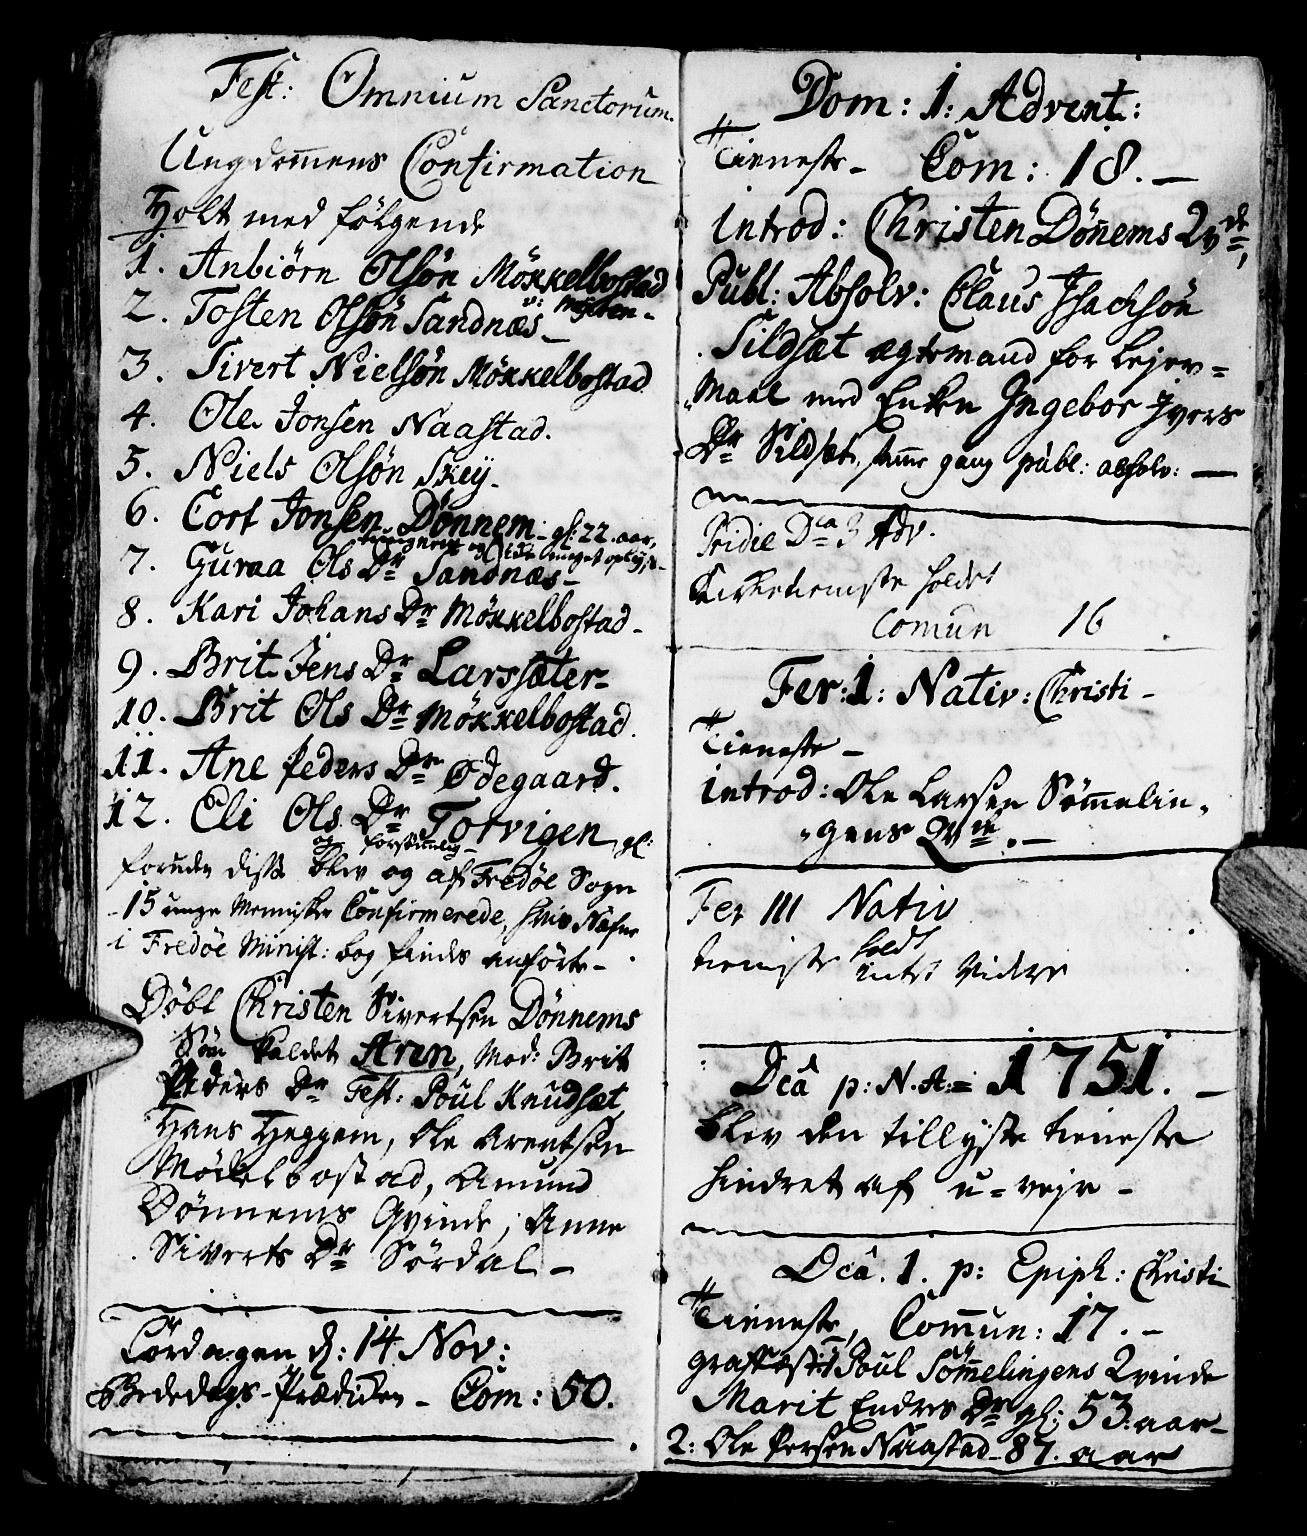 Fest: Omnium Sanctorum.
Ungdomens Confirmation
Holt med følgende
1. Anbiörn Olsön Mökkelbostad
2. Tosten Olsön Sandnæs
3. Sivert Nielsön Mökkelbostad
4. Ole Jonsen Naastad.
5. Niels Olsön Skeÿ.
6. Cort Jonsen Dönnem - gl: 22. aar,
7. Guraa Ols Dr Sandnæs -
8. Kari Johans Dr Mökkelbostad -
9. Brit Jens Dr Larssæter -
10. Brit Ols Dr Mökkelbostad.
11. Ane Peders Dr Ødegaard.
12. Eli Ols Dr Torvigen gl:
foruden disse blev og af Fredöe Sogn
15 unge Mennisker Confirmerede, hvis Nafne
i Fredöe Minist: bog findes anförte -
Döbt Christen Sivertsen Dönnems
Sön kaldet Aren, Mod: Brit
Peders Dr Test: Poul Knudsæt
Hans Heggem, Ole Arentsen
Möckelbostad, Amund
Dönnems Qvinde, Anne
Siverts Dr Sördal -
Lördagen d: 14 Nov:
Bededags-Prædiken - Com: 50.
Dom: 1: Advent:
Tieneste - Com: 18. -
Introd: Christen Dönnems Qvde,
Publ: Absolv: Claus Isachsön
Sildsæt ægtemand for Lejer=
Maal med Enken Ingebor Ivers
Dr Sildsæt, samme gang publ: absolv: -
Pridie Dca 3 Adv.
Kirketieneste holdet
Comun 16
Fer: 1: Nativ: Christi -
Tieneste -
Introd: Ole Larsen Sömmelin
gens Qvde. -
Fer III Nativ
tieniste holdt
intet Videre
Dca p: N. A: = 1751. -
blev den tillÿste tieneste
hindret af u=vejr -
Dca. 1. p: Epiph: Christi
Tieneste, Commun: 17. -
grafæstet Poul Sömmelingens Qvinde
Marit Endres Dr gl: 53 aar -
2: Ole Persen Naastad - 87. aar